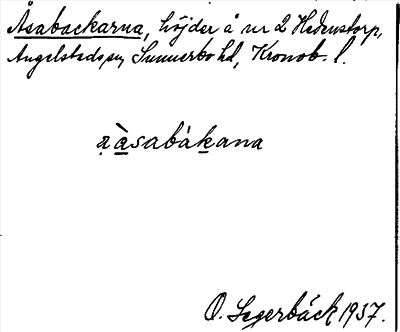 Åsabackarna, höjder å nr 2 Hedenstorp,
Angelstads sn, Sunnerbo hd, Kronob. l.
a̤ àsabákana
O. Segerbäck 1937.